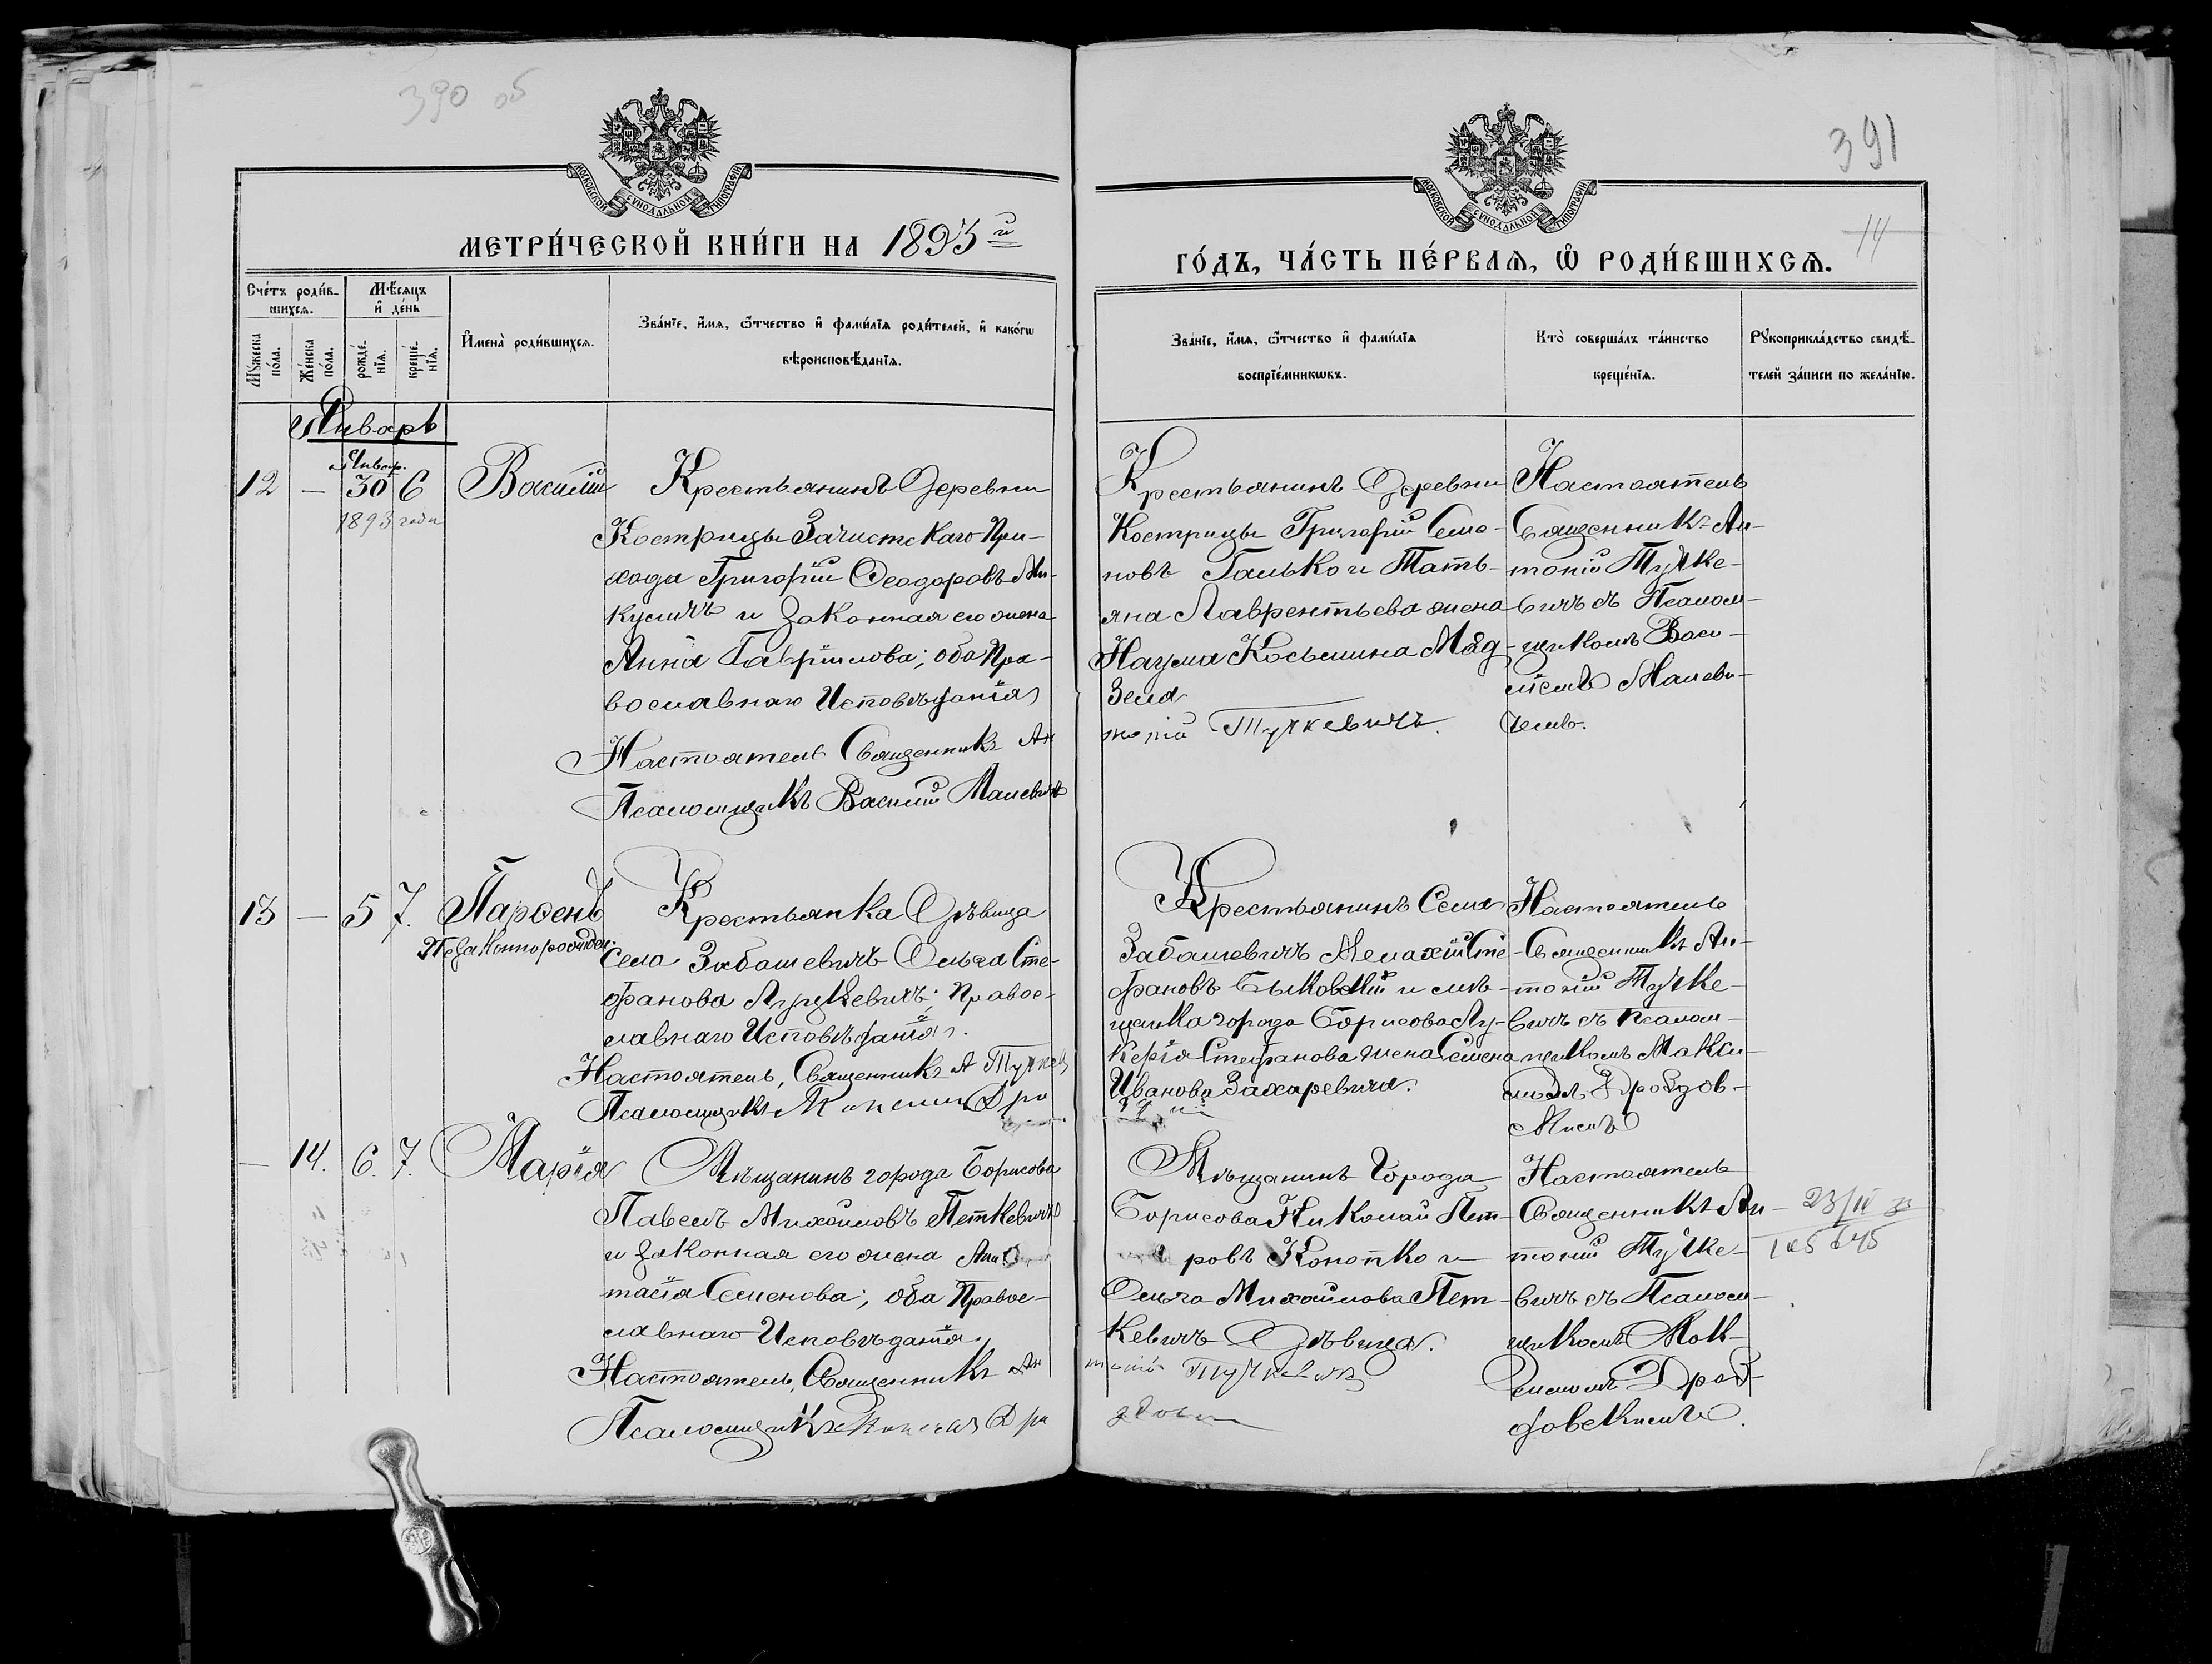 390 об
МОСКОВСКОЙ СѴНОДАЛЬНОЙ ТИПОГРАФІИ
МЕТРИ́ЧЕСКОЙ КНИ́ГИ НА 1893й
Сче́тъ роди́в-
шихсѧ.
Мѣ́сѧцъ
и҆ де́нь
Мꙋ́жеска по́ла.
Же́нска по́ла.
рожде́-
нїѧ.
креще́-
нїѧ.
И҆мена̀ роди́вшихсѧ.
Зва́нїе, и҆́мѧ, ѻ҆́тчество и҆ фами́лїѧ роди́телей, и҆ како́гѡ
вѣроисповѣ́данїѧ.
Январь
Январ.
12 — 30 6 Василій
1893 года
Крестьянинъ Деревни
Кострицы Зачистскаго При-
хода Григорій Ѳеодоровъ Ми-
куличъ и законная его жена
Анна Гавріилова; оба Пра-
вославнаго Исповѣданія
Настоятель Священникъ Ан
Псаломщикъ Василій Малевичъ
13 — 5 7. Парѳенъ
Незаконнорожден.
Крестьянка Дѣвица
Села Забашевичъ Ольга Сте-
фанова Луцкевичъ; Правос-
лавнаго Исповѣданія.
Настоятель, Священникъ А Тучкев
Псаломщикъ Максим Дро
— 14. 6. 7. Марія
Мѣщанинъ города Борисова
Павелъ Михайловъ Петкевичъ
и законная его жена Анас
тасія Семенова; оба Правос-
лавнаго Исповѣданія.
Настоятель, Священникъ Ан
Псаломщикъ Максим Дро
391
14
МОСКОВСКОЙ СѴНОДАЛЬНОЙ ТИПОГРАФІИ
ГО́ДЪ, ЧА́СТЬ ПЕ́РВАѦ, Ѽ РОДИ́ВШИХСѦ.
Зва́нїе, и҆́мѧ, ѻ҆́тчество и҆ фами́лїѧ
воспрїе́мникѡвъ.
Кто̀ соверша́лъ та́инство
креще́нїѧ.
Рꙋкоприкла́дство свидѣ́-
телей за́писи по жела́нїю.
Крестьянинъ Деревни
Кострицы Григорій Семе-
новъ Галько и Тать-
яна Лаврентьева жена
Наума Косьмина Мяд-
зеля
тоній Тучкевичъ.
Настоятель
Священникъ Ан-
тоній Тучке-
вичъ съ Псалом-
щикомъ Васи-
ліемъ Малеви-
чемъ.
Крестьянинъ Села
Забашевичъ Малахій Сте-
фановъ Быковскій и мѣ-
щанка города Борисова Лу-
керія Стефанова жена Семена
Иванова Захаревича.
Настоятель
Священникъ Ан-
тоній Тучке-
вичъ съ Псалом-
щикомъ Макси-
момъ Дроздов-
скимъ
Мѣщанинъ Города
Борисова Николай Пет-
ровъ Конопко и
Ольга Михайлова Пет-
кевичъ Дѣвица.
тоній Тучкевичъ
здовск
Настоятель
Священникъ Ан-
тоній Тучке-
вичъ съ Псалом-
щикомъ Мак-
симомъ Дроз-
довскимъ.
23/IV